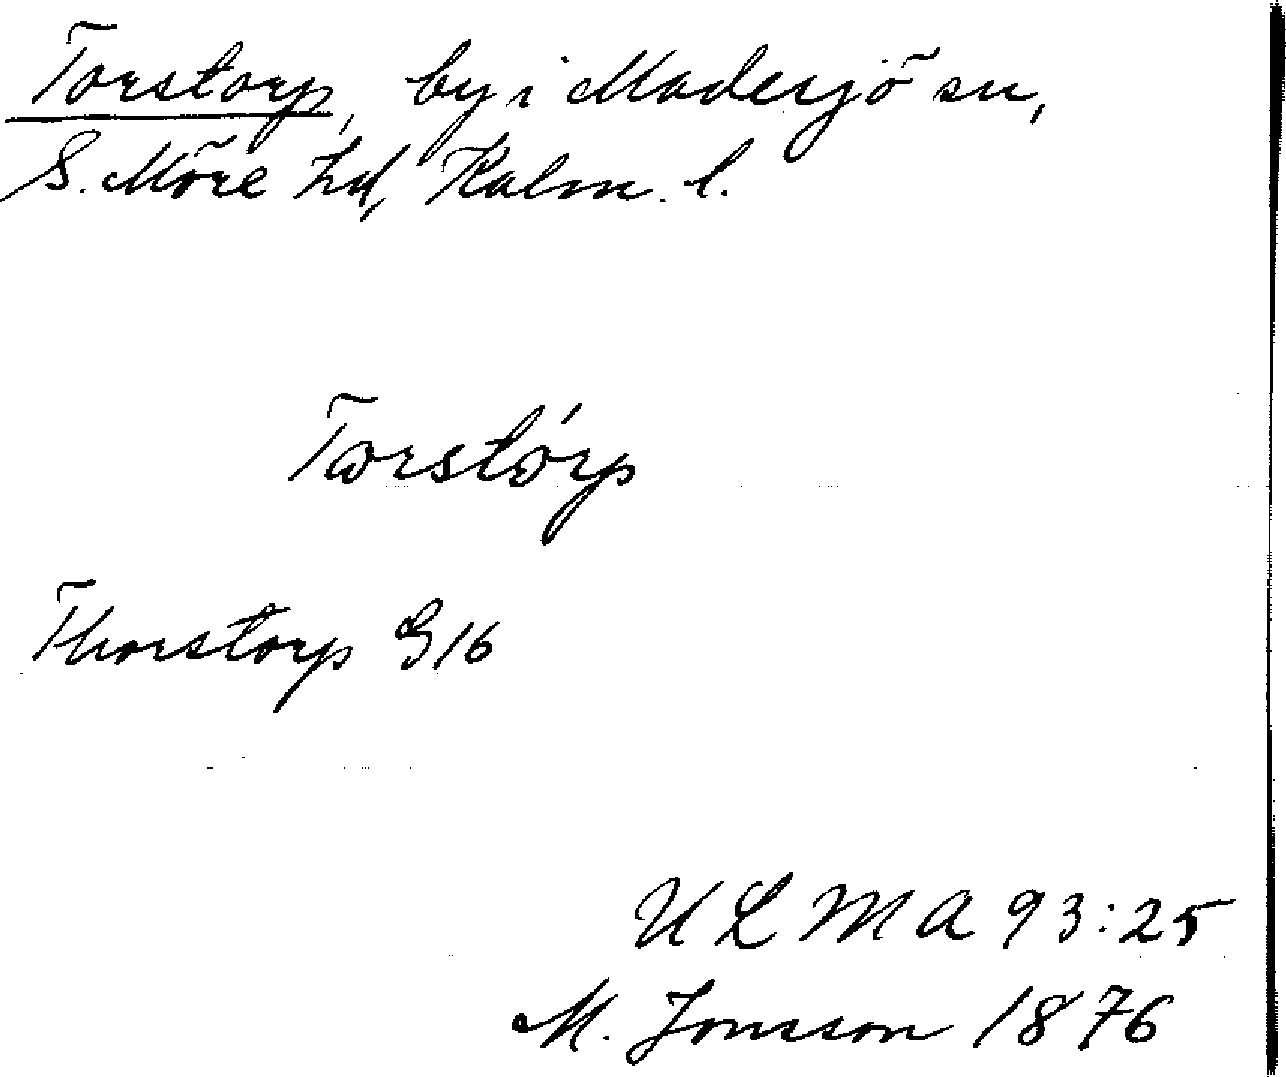 Torstorp, by i Madesjö sn,
S. Möre hd, Kalm. l.
Torstórp
Thorstorp G16
ULMA 93:25
M. Jonsson 1876